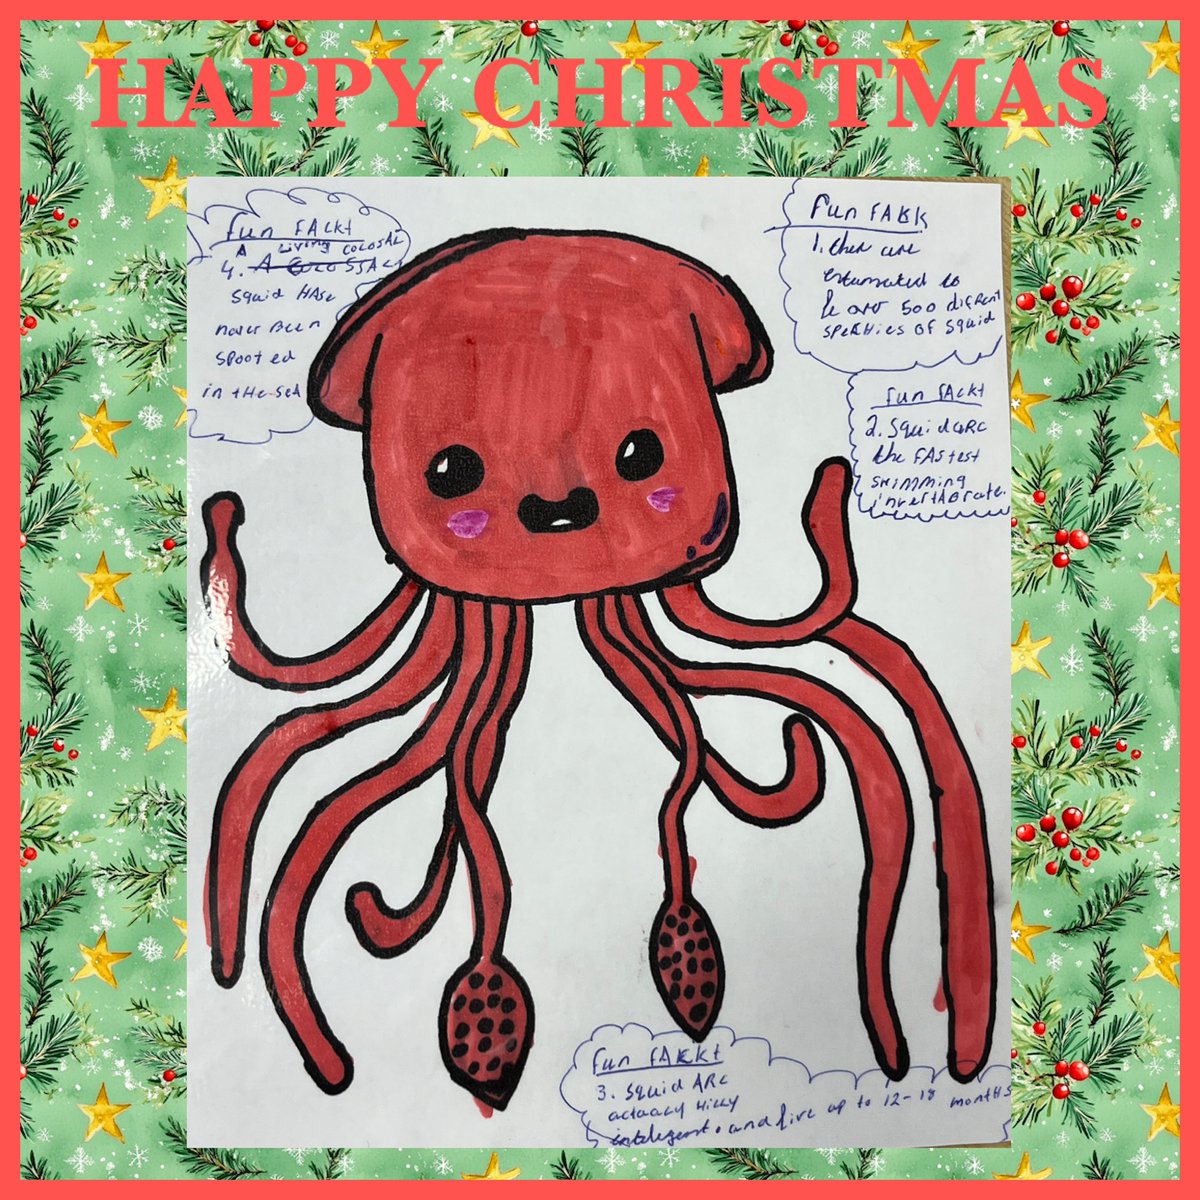 HAPPY CHRISTMAS
fun fACkt
A Living COLOSAL
4. A COLOSSAL
Squid HASe
never Been
Spooted
in tHe SeA
fun FACK
1. ther are
estumated to
be over 500 diferent
SpeCHies OF Squid
fun fACkt
2. Squid ARe
the FAStest
swimming
invertABrate.
fun fACkt
3. Squid ARe
actaacy Hiley
intelegent. and live up to 12-18 montHS